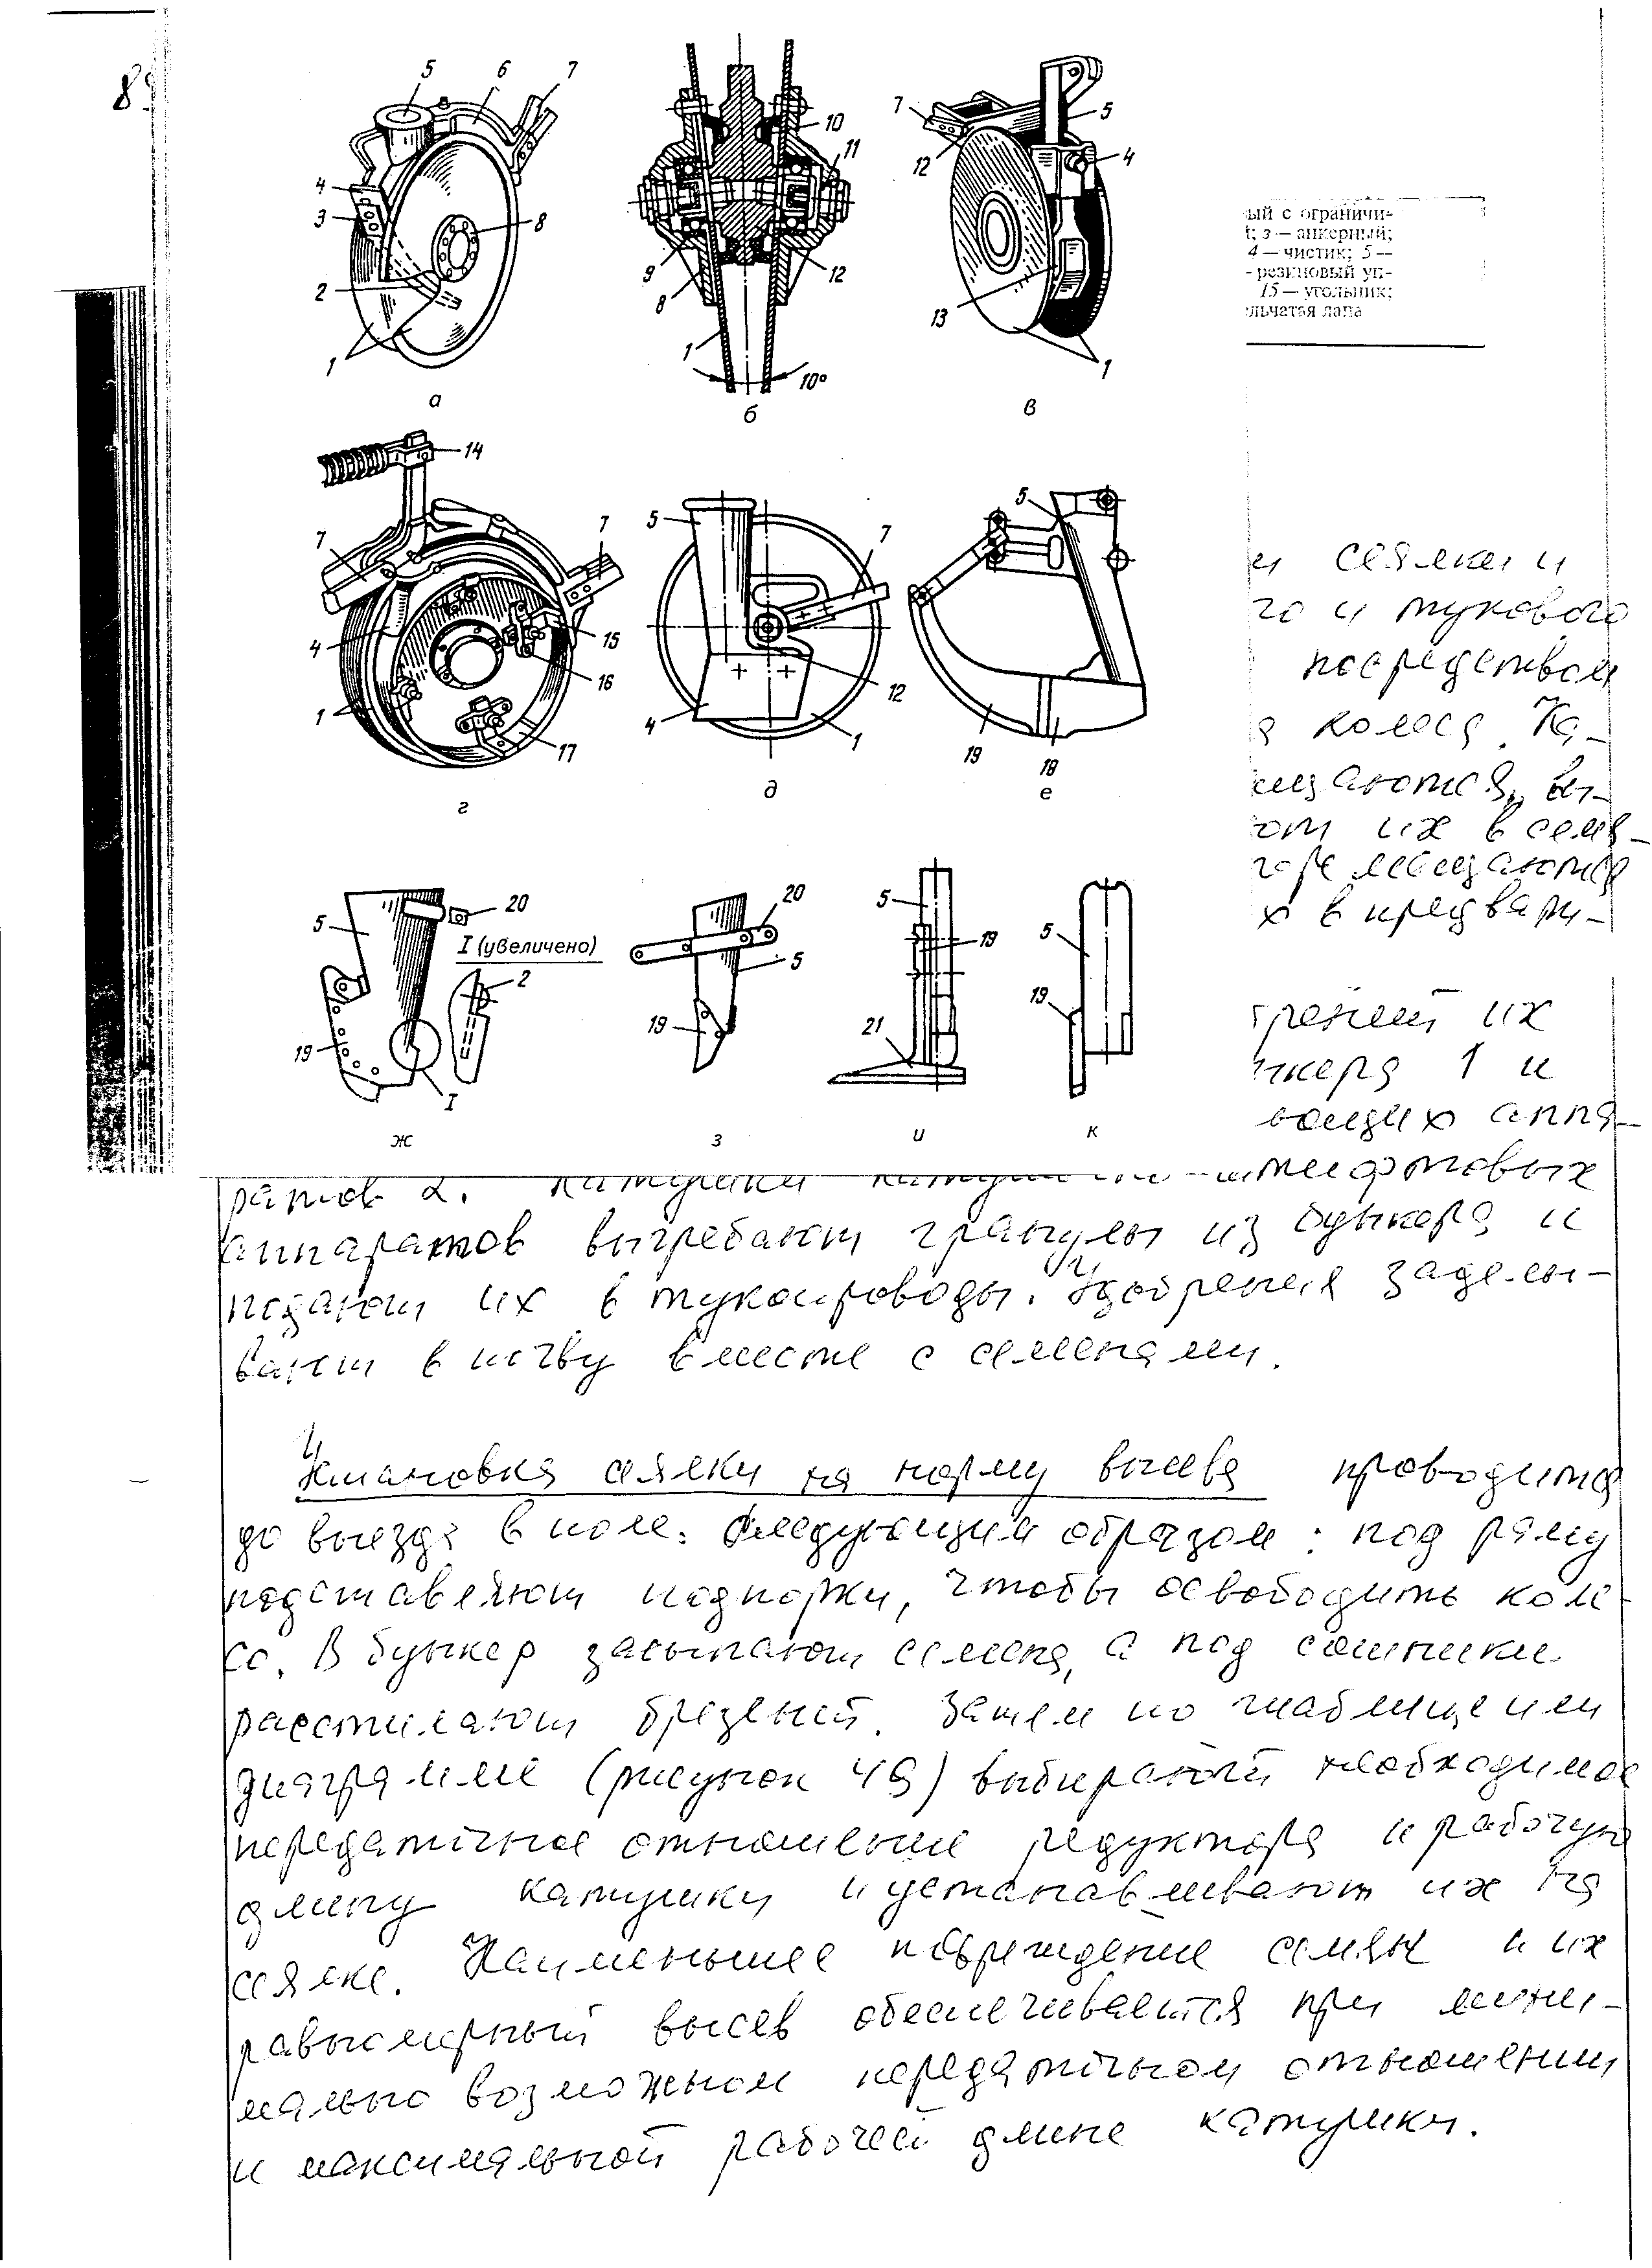 8
5 6 7
4
3
8
2
1
а
10
11
9
8
12
1
10°
б
7
5
12
4
13
1
в
ый с ограничи-
; з — анкерный;
4 — чистик; 5 —
- резиновый уп-
15 — угольник;
льчатая лапа
14
7
7
4
15
16
1
17
г
5
7
12
4
1
д
5
19
18
е
и сеялки и
го и тукового
посредством
колеса. Ка-
щаются, вы-
ют их в семя-
перемещаются
х в предвари-
5
20
I (увеличено)
2
19
I
ж
20
5
19
з
5
19
21
и
5
19
к
их
нкера 1 и
вающих аппа-
ратов 2. Катушки катушечно-штифтовых
аппаратов выгребают гранулы из бункера и
подают их в тукопроводы. Удобрения заделы-
вают в почву вместе с семенами.
Установка сеялки на норму высева проводится
до выезда в поле. следующим образом: под раму
подставляют подпорки, чтобы освободить коле-
со. В бункер засыпают семена, а под сошники
расстилают брезент. Затем по таблице или
диаграмме (рисунок 49) выбирают необходимое
передаточное отношение редуктора и рабочую
длину катушки и устанавливают их на
сеялке. Наименьшее повреждение семян и их
равномерный высев обеспечивается при мини-
мально возможном передаточном отношении
и максимальной рабочей длине катушки.